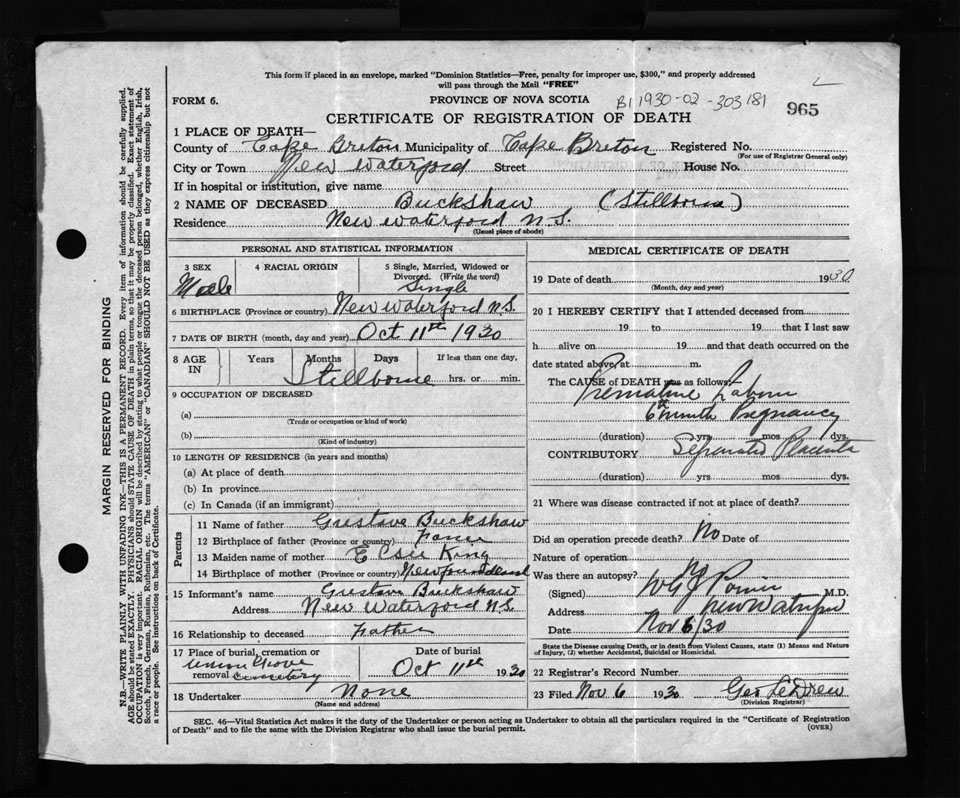 This form if placed in an envelope, marked "Dominion Statistics—Free, penalty for improper use, $300," and properly addressed
will pass through the Mail "FREE"
FORM 6.
PROVINCE OF NOVA SCOTIA
B1 1930-02-303181
965
CERTIFICATE OF REGISTRATION OF DEATH
1 PLACE OF DEATH—
County of Cape Breton Municipality of Cape Breton Registered No.
(For use of Registrar General only)
City or Town New Waterford Street House No.
If in hospital or institution, give name
2 NAME OF DECEASED Buckshaw (Stillborn)
Residence New Waterford N.S.
(Usual place of abode)
PERSONAL AND STATISTICAL INFORMATION
3 SEX Male
4 RACIAL ORIGIN
5 Single, Married, Widowed or Divorced. (Write the word) Single
6 BIRTHPLACE (Province or country) New Waterford N.S.
7 DATE OF BIRTH (month, day and year) Oct 11th 1930
8 AGE IN Years Months Days If less than one day,
Stillborne hrs. or min.
9 OCCUPATION OF DECEASED
(a)
(Trade or occupation or kind of work)
(b)
(Kind of industry)
10 LENGTH OF RESIDENCE (in years and months)
(a) At place of death
(b) In province
(c) In Canada (if an immigrant)
Parents
11 Name of father Gustave Buckshaw
12 Birthplace of father (Province or country)
13 Maiden name of mother King
14 Birthplace of mother (Province or country) Newfoundland
15 Informant's name Gustave Buckshaw
Address New Waterford N.S.
16 Relationship to deceased Father
17 Place of burial, cremation or removal Union Grove cemetery
Date of burial Oct 11th 1930
18 Undertaker None
(Name and address)
MEDICAL CERTIFICATE OF DEATH
19 Date of death 1930
(Month, day and year)
20 I HEREBY CERTIFY that I attended deceased from
19 to 19 that I last saw
h alive on 19 and that death occurred on the
date stated above, at m.
The CAUSE of DEATH was as follows:
Premature Labour
6th month Pregnancy
(duration) yrs mos dys.
CONTRIBUTORY Separated Placenta
(duration) yrs mos dys.
21 Where was disease contracted if not at place of death?
Did an operation precede death? No Date of
Nature of operation
Was there an autopsy? No
(Signed) M.D.
Address New Waterford
Date Nov 6/30
State the Disease causing Death, or in death from Violent Causes, state (1) Means and Nature
of Injury, (2) whether Accidental, Suicidal or Homicidal.
22 Registrar's Record Number
23 Filed Nov 6 1930 Geo LeDrew
(Division Registrar)
SEC. 46—Vital Statistics Act makes it the duty of the Undertaker or person acting as Undertaker to obtain all the particulars required in the "Certificate of Registration
of Death" and to file the same with the Division Registrar who shall issue the burial permit.
(OVER)
MARGIN RESERVED FOR BINDING
N.B.—WRITE PLAINLY WITH UNFADING INK—THIS IS A PERMANENT RECORD. Every item of information should be carefully supplied.
AGE should be stated EXACTLY. PHYSICIANS should STATE CAUSE OF DEATH in plain terms, so that it may be properly classified. Exact statement of
OCCUPATION is very important. RACIAL ORIGIN will be described by stating to what people or tongue the deceased person belonged, whether English, Irish,
Scotch, French, German, Russian, Ruthenian, etc. The terms "AMERICAN" or "CANADIAN" SHOULD NOT BE USED as they express citizenship but not
a race or people. See instructions on back of Certificate.